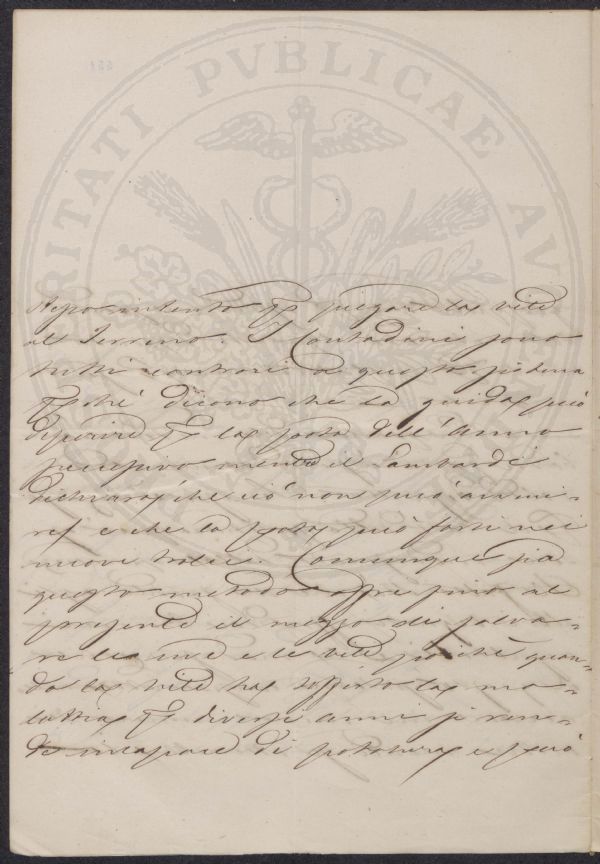 PVBLICAE
AV
RITATI
intento per piegare la vite
al Terreno. I Contadini sono
tutti contrari a questo sistema
perché dicono che la guida può
deperire per la pota dell'Anno
successivo mentre il Lambarde
dichiara che ciò non può avveni-
re e che la pota può farsi nei
nuovi tralci. Comunque sia
questo metodo offre sino al
presente il mezzo di salva-
re le uve e le vite, poiché quan-
do la vite ha sofferto la ma-
lattia per diversi anni si ren-
de incapace di potatura e però